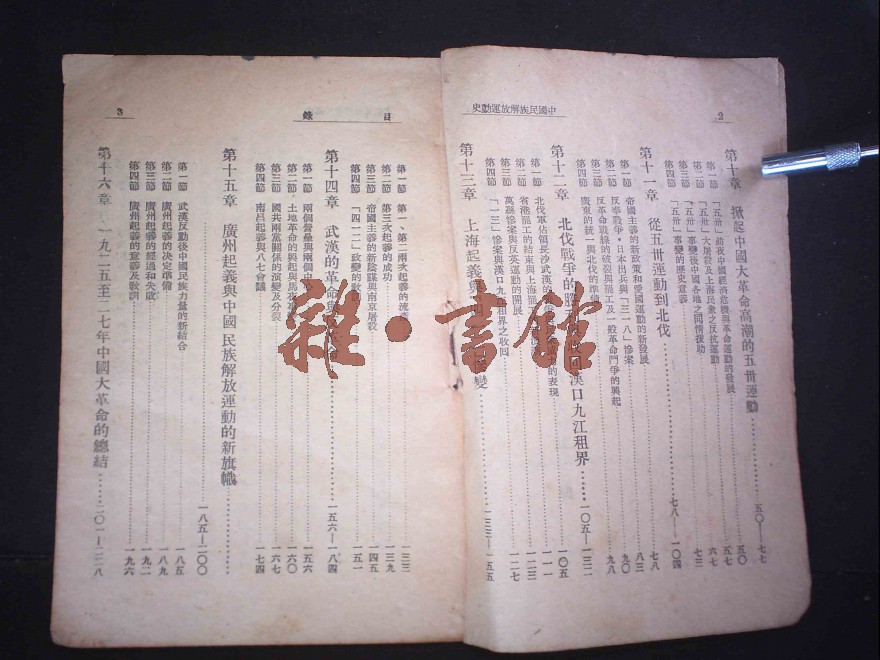 2
中國民族解放運動史
第十章 掀起中國大革命高潮的五卅運動……五〇—七七
第一節 「五卅」前夜中國經濟危機與革命運動的發展……五〇
第二節 「五卅」大屠殺及上海民衆之反抗運動……五七
第三節 「五卅」事變後中國各地之同情援助……六七
第四節 「五卅」事變的歷史意義……七三
第十一章 從五卅運動到北伐……七八—一〇四
第一節 帝國主義的新政策和愛國運動的新發展……七八
第二節 反奉戰爭，日本出兵與「三一八」慘案……八三
第三節 反革命戰線的破裂與罷工及一般革命鬥爭的興起……九〇
第四節 廣東的統一與北伐的準備……九八
第十二章 北伐戰爭的 收回漢口九江租界……一〇五—一三二
第一節 北伐軍佔領長沙武漢的 的表現……一〇五
第二節 省港罷工的結束與上海罷工……一一一
第三節 萬縣慘案與反英運動的開展……一二三
第四節 「一三」慘案與漢口九江租界之收回……一二七
第十三章 上海起義與 變……一三三—一五五
目錄
3
第一節 第一、第二兩次起義的流產……一三三
第二節 第三次起義的成功……一三九
第三節 帝國主義的新陰謀與南京屠殺……一四五
第四節 「四一二」政變的教訓……一五一
第十四章 武漢的革命與……一五六—一八四
第一節 兩個營壘與兩個中……一五六
第二節 土地革命的興起與馬夜事變……一六〇
第三節 國共兩黨關係的演變及分裂……一六七
第四節 南昌起義與八七會議……一七四
第十五章 廣州起義與中國民族解放運動的新旗幟……一八五—二〇〇
第一節 武漢反動後中國民族力量的新結合……一八五
第二節 廣州起義的決定準備……一八九
第三節 廣州起義的經過和失敗……一九二
第四節 廣州起義的意義及教訓……一九六
第十六章 一九二五至二七年中國大革命的總結……二〇一—二二八
雜·書館